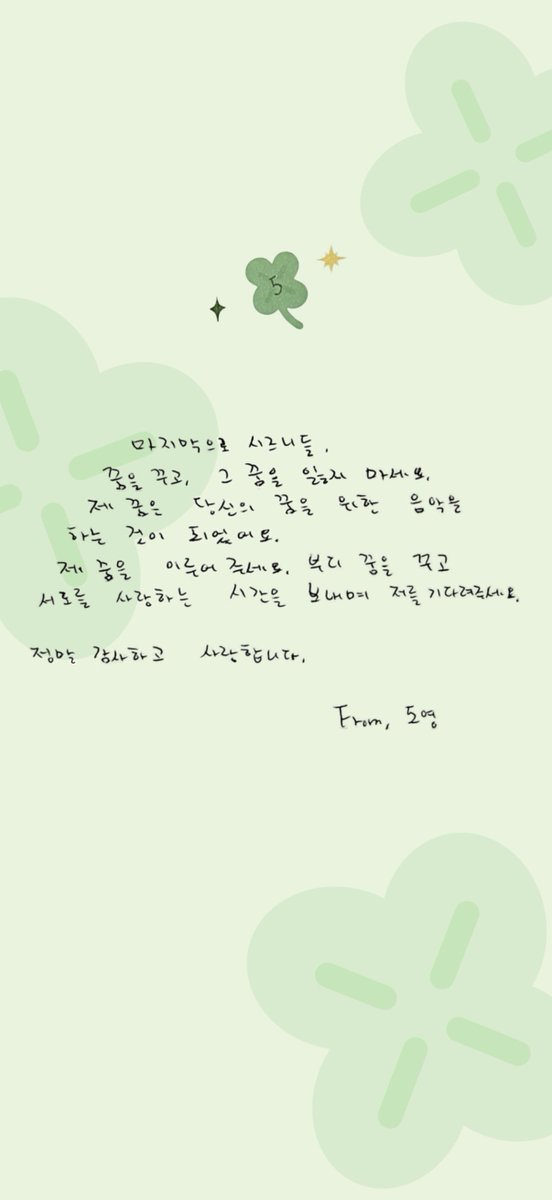 5
마지막으로 시즈니들,
꿈을 꾸고, 그 꿈을 잃지 마세요.
제 꿈은 당신의 꿈을 위한 음악을
하는 것이 되었어요.
제 꿈을 이루어 주세요. 부디 꿈을 꾸고
서로를 사랑하는 시간을 보내며 저를 기다려주세요.
정말 감사하고 사랑합니다.
From, 도영